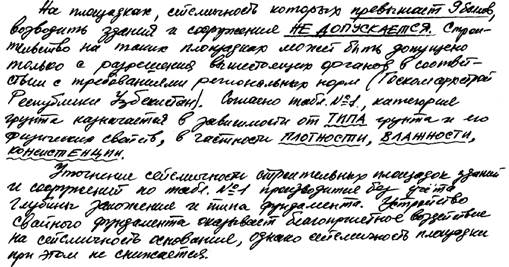 На площадках, сейсмичность которых превышает 9 баллов,
возводить здания и сооружения НЕ ДОПУСКАЕТСЯ. Строи-
тельство на таких площадках может быть допущено
только с разрешения вышестоящих органов в соответ-
ствии с требованиями региональных норм (Госкомархстрой
Республики Узбекистан). Согласно табл. №1, категория
грунта назначается в зависимости от ТИПА грунта и его
физических свойств, в частности ПЛОТНОСТИ, ВЛАЖНОСТИ,
КОНСИСТЕНЦИИ.
Уточнение сейсмичности строительных площадок зданий
и сооружений по табл. №1 производится без учёта
глубины заложения и типа фундамента. Устройство
свайного фундамента оказывает благоприятное воздействие
на сейсмичность основания, однако сейсмичность площадки
при этом не снижается.